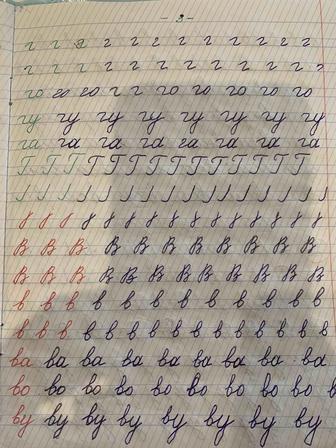 г г г г г г г г г г г г
г г г г г г г г г г г г г
го го го г г го го го го го
гу гу гу гу гу гу гу гу
га га га га га га га га
Г Г Г Г Г Г Г Г Г Г Г Г Г
В В В В В В В В В В
В В В В В В В В В В
в в в в в в в в в в в в
в в в в в в в в в в в в в в
ва ва ва ва ва ва ва ва ва
во во во во во во во во во в
ву ву ву ву ву ву ву ву